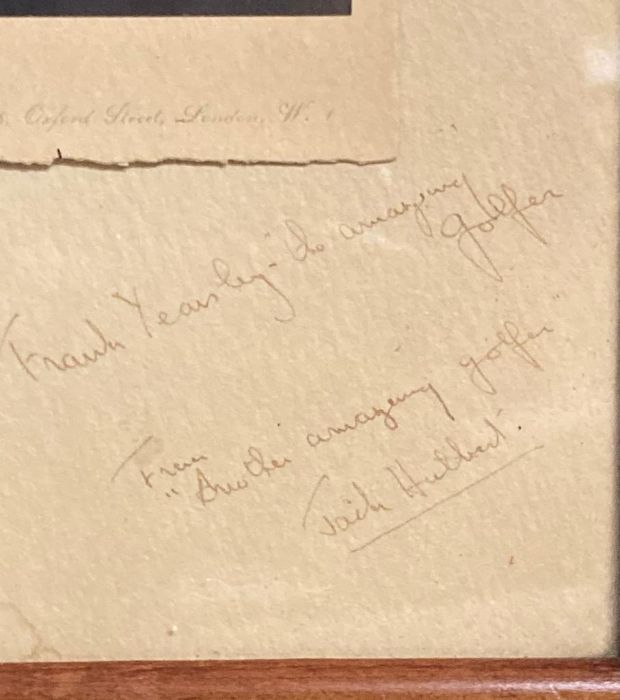 Oxford Street, London, W. 1
Frank Yearsley - the amazing
golfer
From
"Another amazing golfer"
Jack Hulbert.